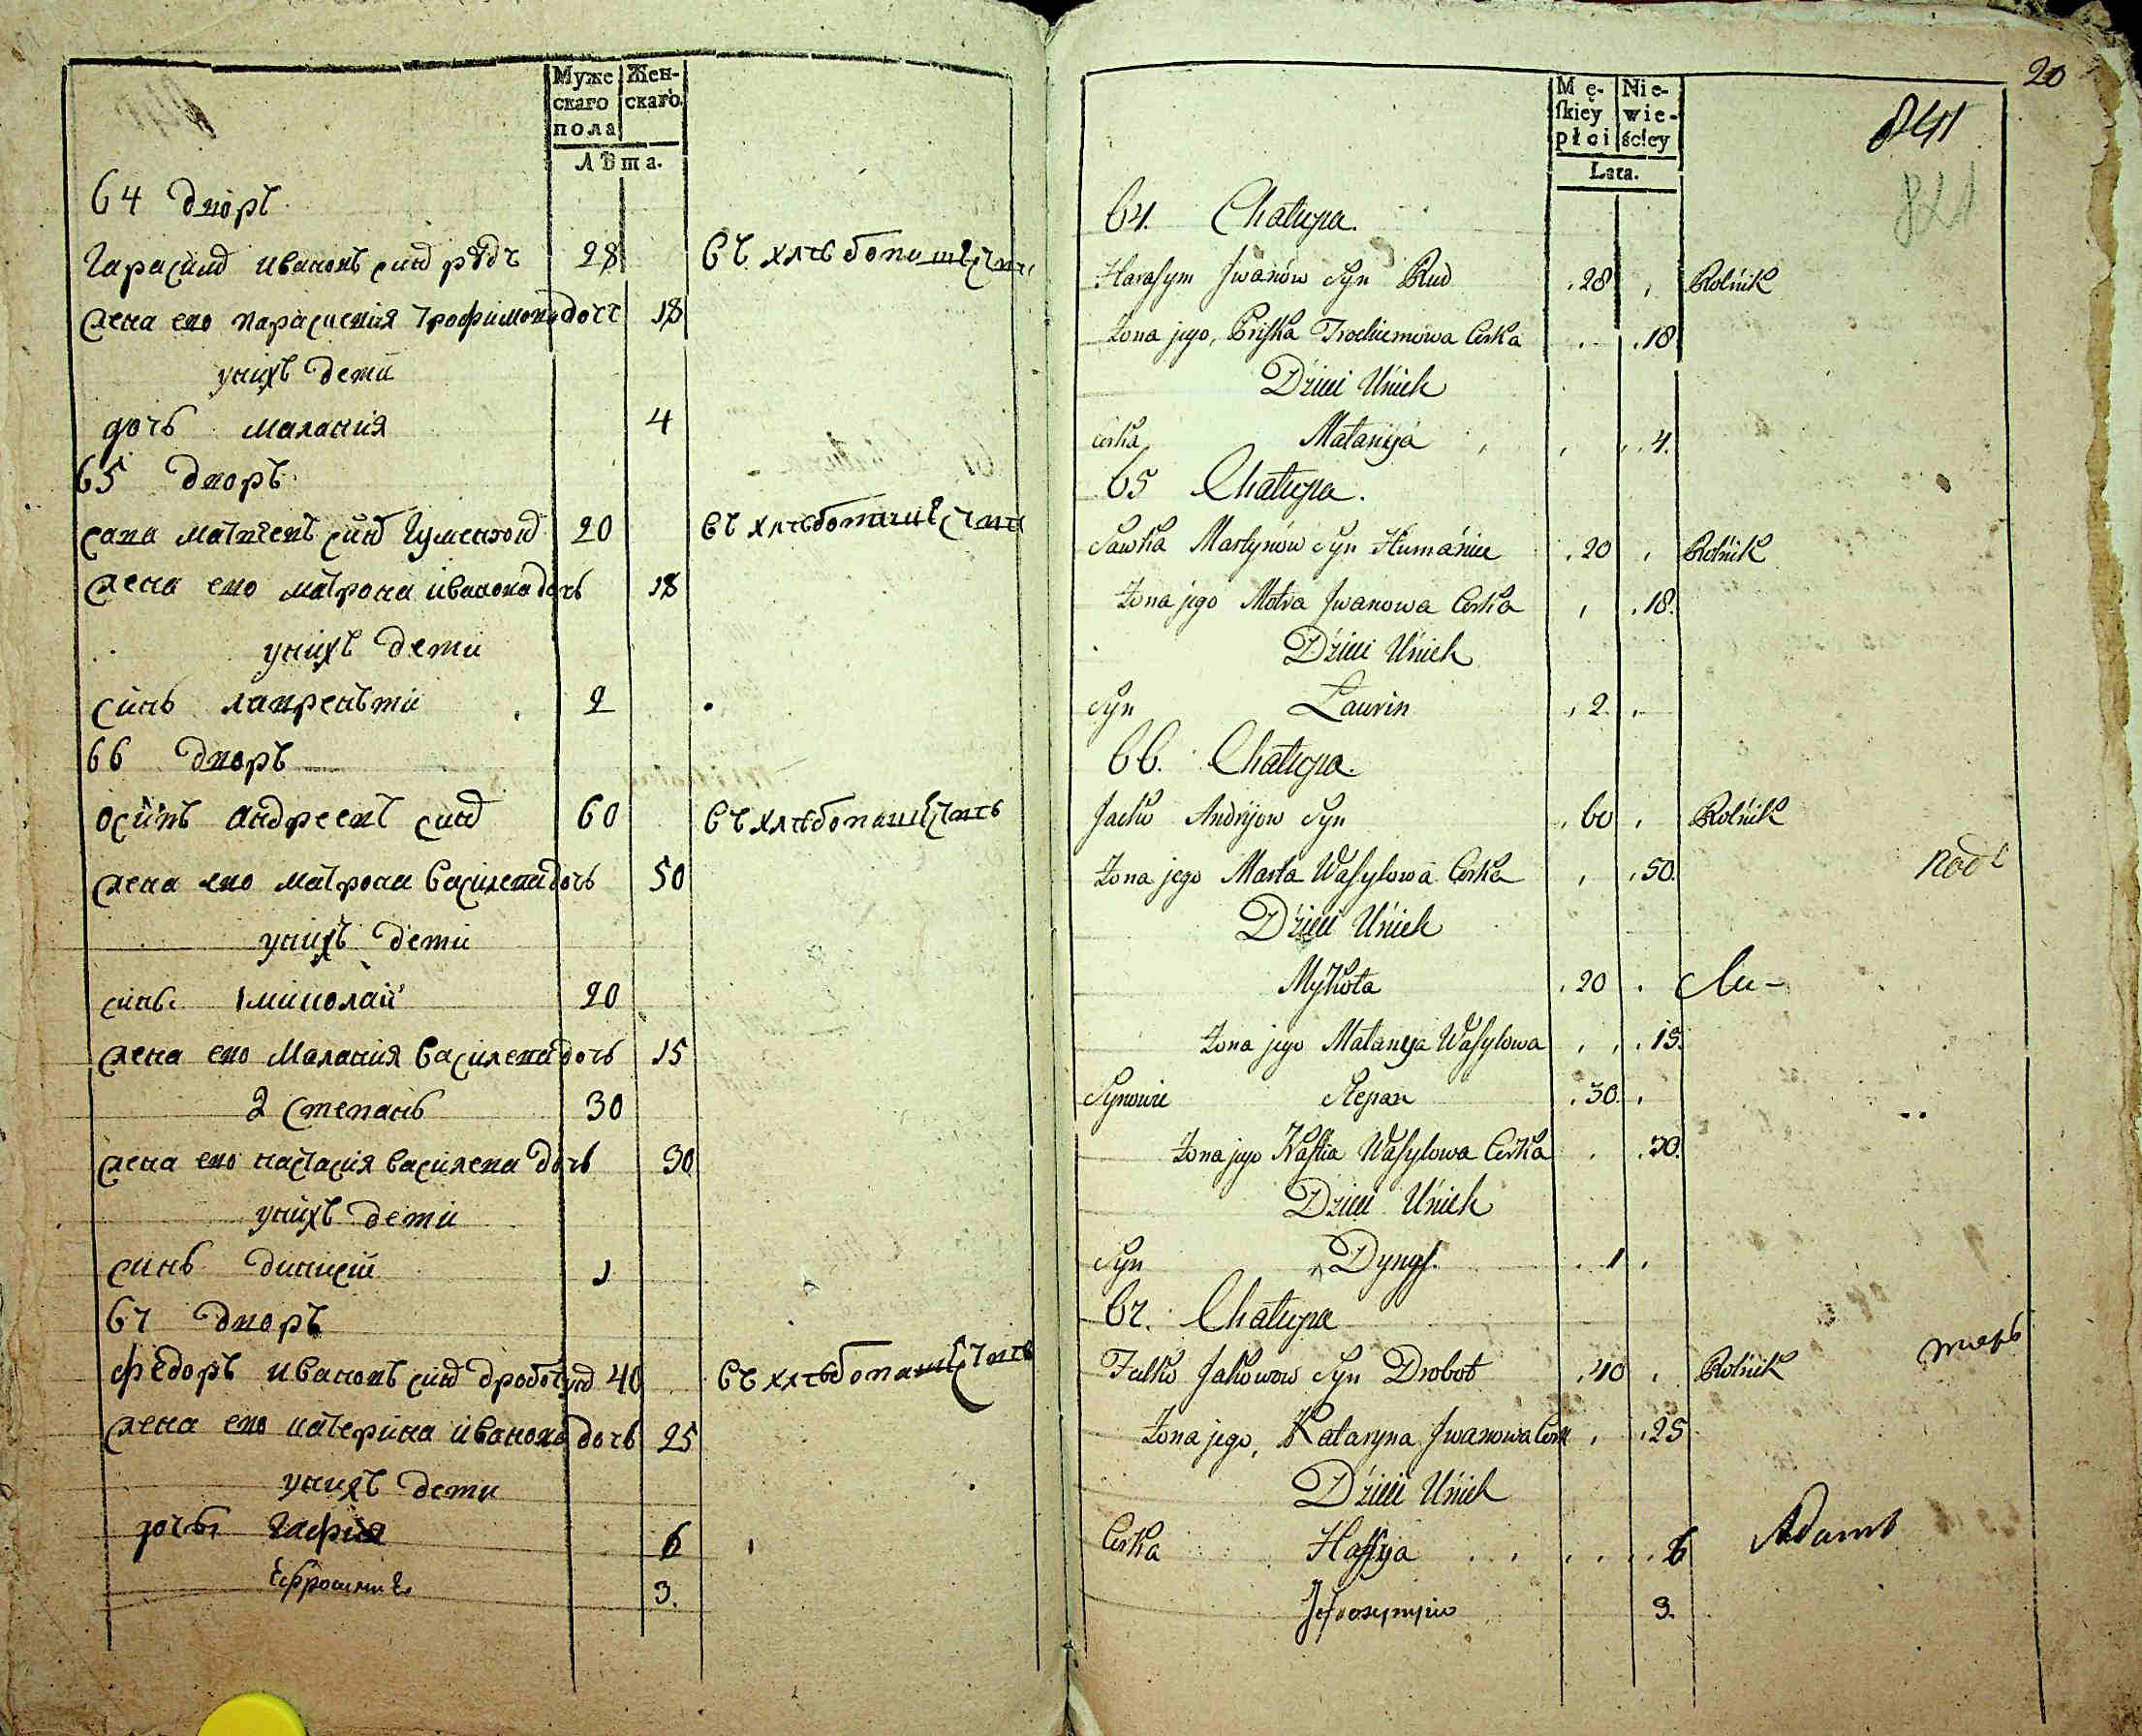 Муже
скаго
пола
Жен-
скаго.
Лѣта.
64 дворъ
Гарасимъ ивановъ синъ рудъ 28 въ хлѣбопашествѣ
жена его парасиевия трофимова дочь 18
унихъ дети
дочь малания 4
65 дворъ
сава матвеевъ синъ Гуменюкъ 20 въ хлѣбопашествѣ
жена его матрона иванова дочь 18
унихъ дети
синъ лаврентий 2
66 дворъ
осипъ андреевъ синъ 60 въ хлѣбопашествѣ
жена его матрона василева дочь 50
унихъ дети
синъ 1 миколай 20
жена его Малания василева дочь 15
2 степанъ 30
жена его настасия василева дочь 30
унихъ дети
синъ динисий 1
67 дворъ
федоръ ивановъ синъ дробот 40 въ хлѣбопашествѣ
жена его катерина иванова дочь 25
унихъ дети
дочь Гафия 6
3.
20
841
821
Mę-
ſkiey
płci
Nie-
wie-
ściey
Lata.
64. Chałupa.
Harasym Jwanów Syn Rud 28 Rolnik
Zona jego, Priska Trochiemowa Corka 18
Dzieci Unich
Corka Małanyja 4.
65 Chałupa.
Sawka Martynów Syn Humaniu 20 Rolnik
Zona jego Motra Jwanowa Corka 18.
Dzieci Unich
Syn Ławrin 2
66. Chałupa.
Jacko Andryjow Syn 60 Rolnik
Zona jego Marta Wasylowa Corka 50.
Dzieci Unich
Mykoła 20
Zona jego Małanya Wasylowa 15.
Synowie Stepan 30.
Zona jego Nastia Wasylowa Corka 30.
Dzieci Unich
Syn Dynys. 1
67. Chałupa
Fedko Jakowow Syn Drobot 40 Rolnik
Zona jego, Kataryna Jwanowa Cork 25
Dzieci Unich
Corka Hafyja 6
Jefrosynyia 3.
Адамъ